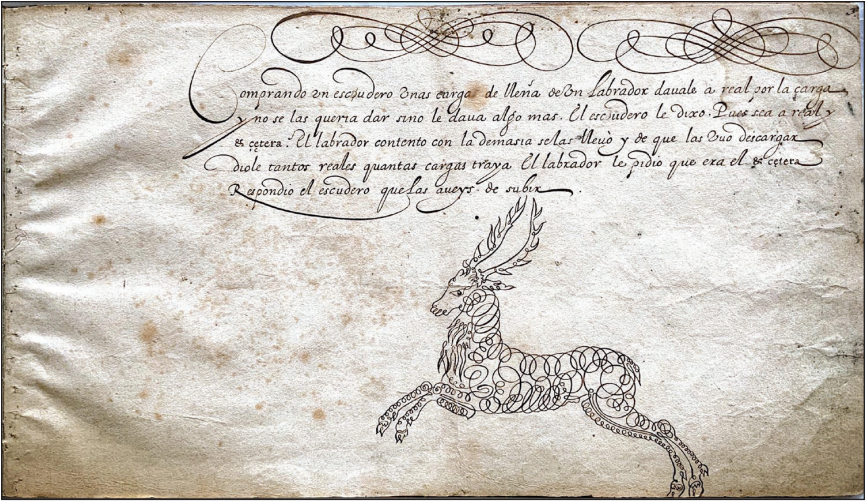 Comprando vn escudero vnas cargas de lleña de vn Labrador davale a real por la carga
y no se las queria dar sino le dava algo mas. El escudero le dixo. Pues sea a real y
& cetera. El labrador contento con la demasia se las llevò y de que las vuo descargar
diole tantos reales quantas cargas traya. El labrador le pidio que era el & cetera
Respondio el escudero que las aveys de subir.